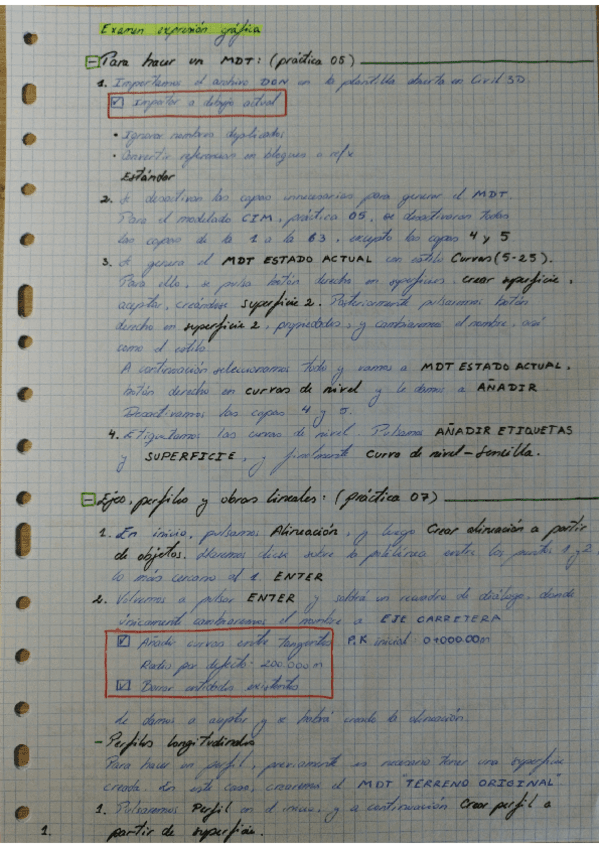 Examen expresión gráfica
Para hacer un MDT: (práctica 05)
1. Importamos el archivo DGN en la plantilla abierta en Civil 3D.
☑ Importar a dibujo actual
• Ignorar nombres duplicados
• Convertir referencias en bloques o refx
Estándar
2. Se desactivan las capas innecesarias para generar el MDT.
Para el modelado CIM, práctica 05, se desactivaran todas
las capas de la 1 a la 63, excepto las capas 4 y 5
3. Se genera el MDT ESTADO ACTUAL con estilo Curvas (5-25).
Para ello, se pulsa botón derecho en superficies, crear superficie,
aceptar, creándose superficie 2. Posteriormente pulsaremos botón
derecho en superficie 2, propiedades, y cambiaremos el nombre, así
como el estilo.
A continuación seleccionamos todo y vamos a MDT ESTADO ACTUAL,
botón derecho en curvas de nivel y le damos a AÑADIR
Desactivamos las capas 4 y 5.
4. Etiquetamos las curvas de nivel. Pulsamos AÑADIR ETIQUETAS
y SUPERFICIE, y finalmente Curva de nivel - Sencilla.
Ejes, perfiles y obras lineales: (práctica 07)
1. En inicio, pulsamos Alineación, y luego Crear alineación a partir
de objetos. Haremos click sobre la polilínea entre los puntos 1 y 2
lo más cercano al 1. ENTER
2. Volvemos a pulsar ENTER y saldrá un recuadro de diálogo, donde
únicamente cambiaremos el nombre a EJE CARRETERA
☑ Añadir curvas entre tangentes P.K inicial: 0+000.00m
Radio por defecto: 200.000m
☑ Borrar entidades existentes
Le damos a aceptar y se habrá creado la alineación
- Perfiles longitudinales
Para hacer un perfil, previamente es necesario tener una superficie
creada. En este caso, crearemos el MDT "TERRENO ORIGINAL"
1. Pulsaremos Perfil en el inicio, y a continuación Crear perfil a
partir de superficie.
1.